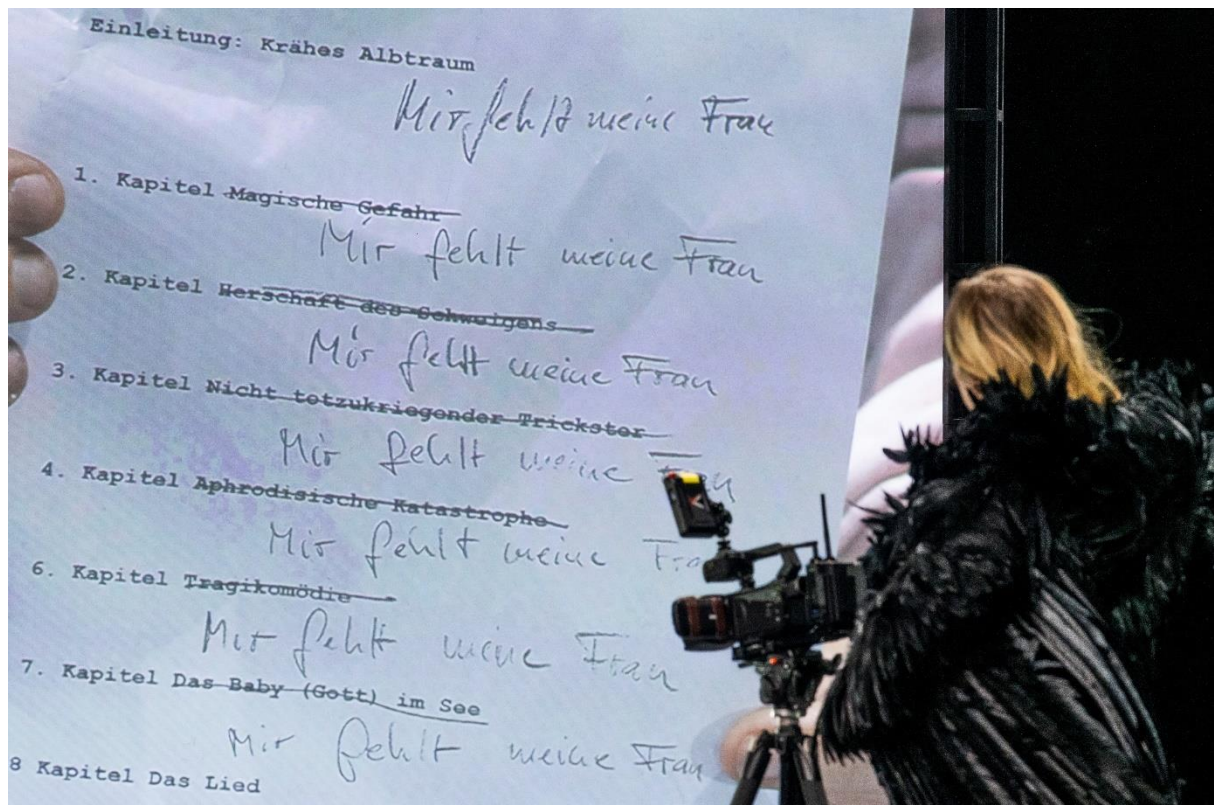 Einleitung: Krähes Albtraum
Mir fehlt meine Frau
1. Kapitel Magische Gefahr
Mir fehlt meine Frau
2. Kapitel Herschaft des Schweigens
Mir fehlt meine Frau
3. Kapitel Nicht totzukriegender Trickster
Mir fehlt meine Frau
4. Kapitel Aphrodisische Katastrophe
Mir fehlt meine Frau
6. Kapitel Tragikomödie
Mir fehlt meine Frau
7. Kapitel Das Baby (Gott) im See
Mir fehlt meine Frau
8 Kapitel Das Lied